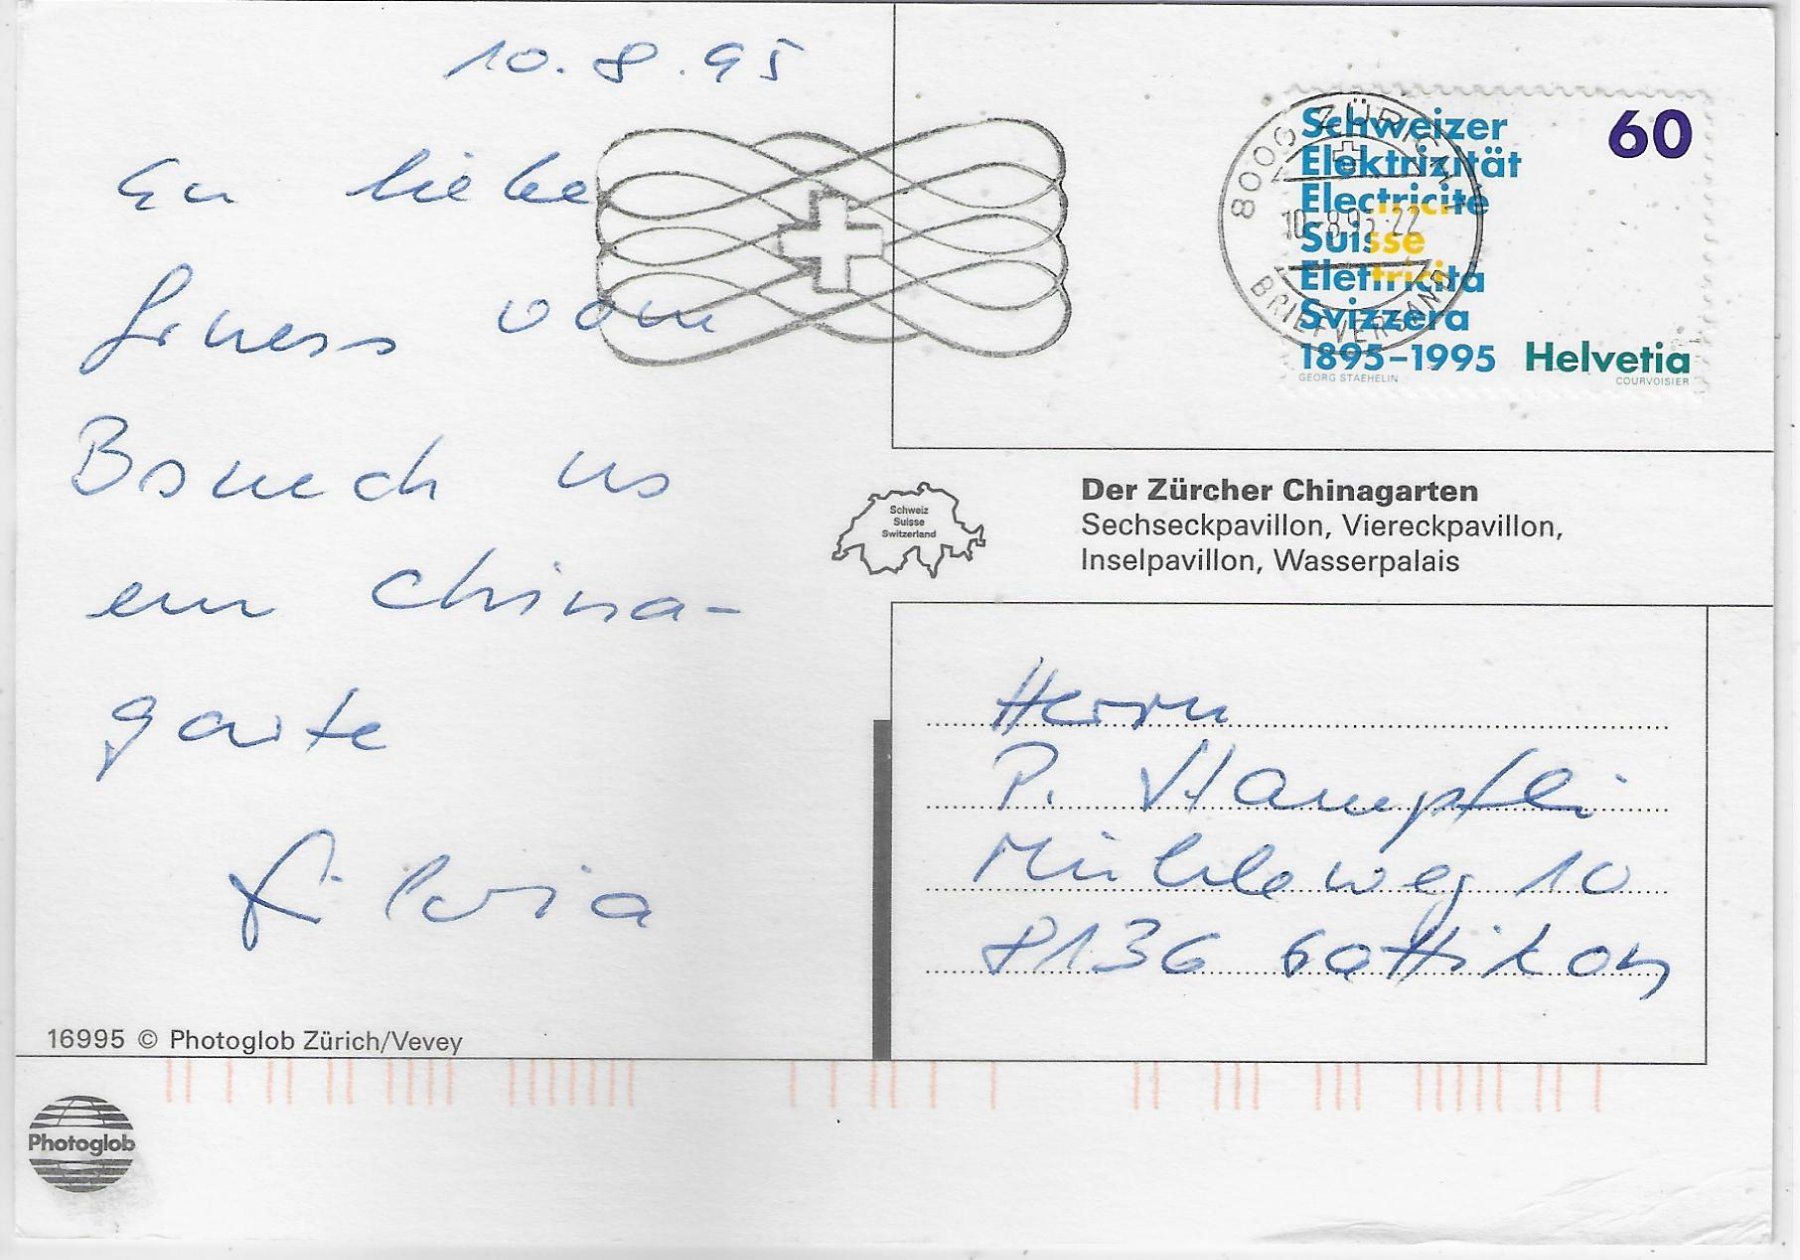 10.8.95
En liebe
Gruess vom
Bsuech us
em China-
garte
Silvia
16995 © Photoglob Zürich/Vevey
Photoglob
8000 ZÜRICH 1
10-8.95-22
BRIEFVERSAND
Schweizer
Elektrizität
Electricité
Suisse
Elettricità
Svizzera
1895-1995
60
Helvetia
GEORG STAEHELIN
COURVOISIER
Schweiz
Suisse
Switzerland
Der Zürcher Chinagarten
Sechseckpavillon, Viereckpavillon,
Inselpavillon, Wasserpalais
Herrn
P. Hampfli
Mühleweg 10
8136 Gattikon